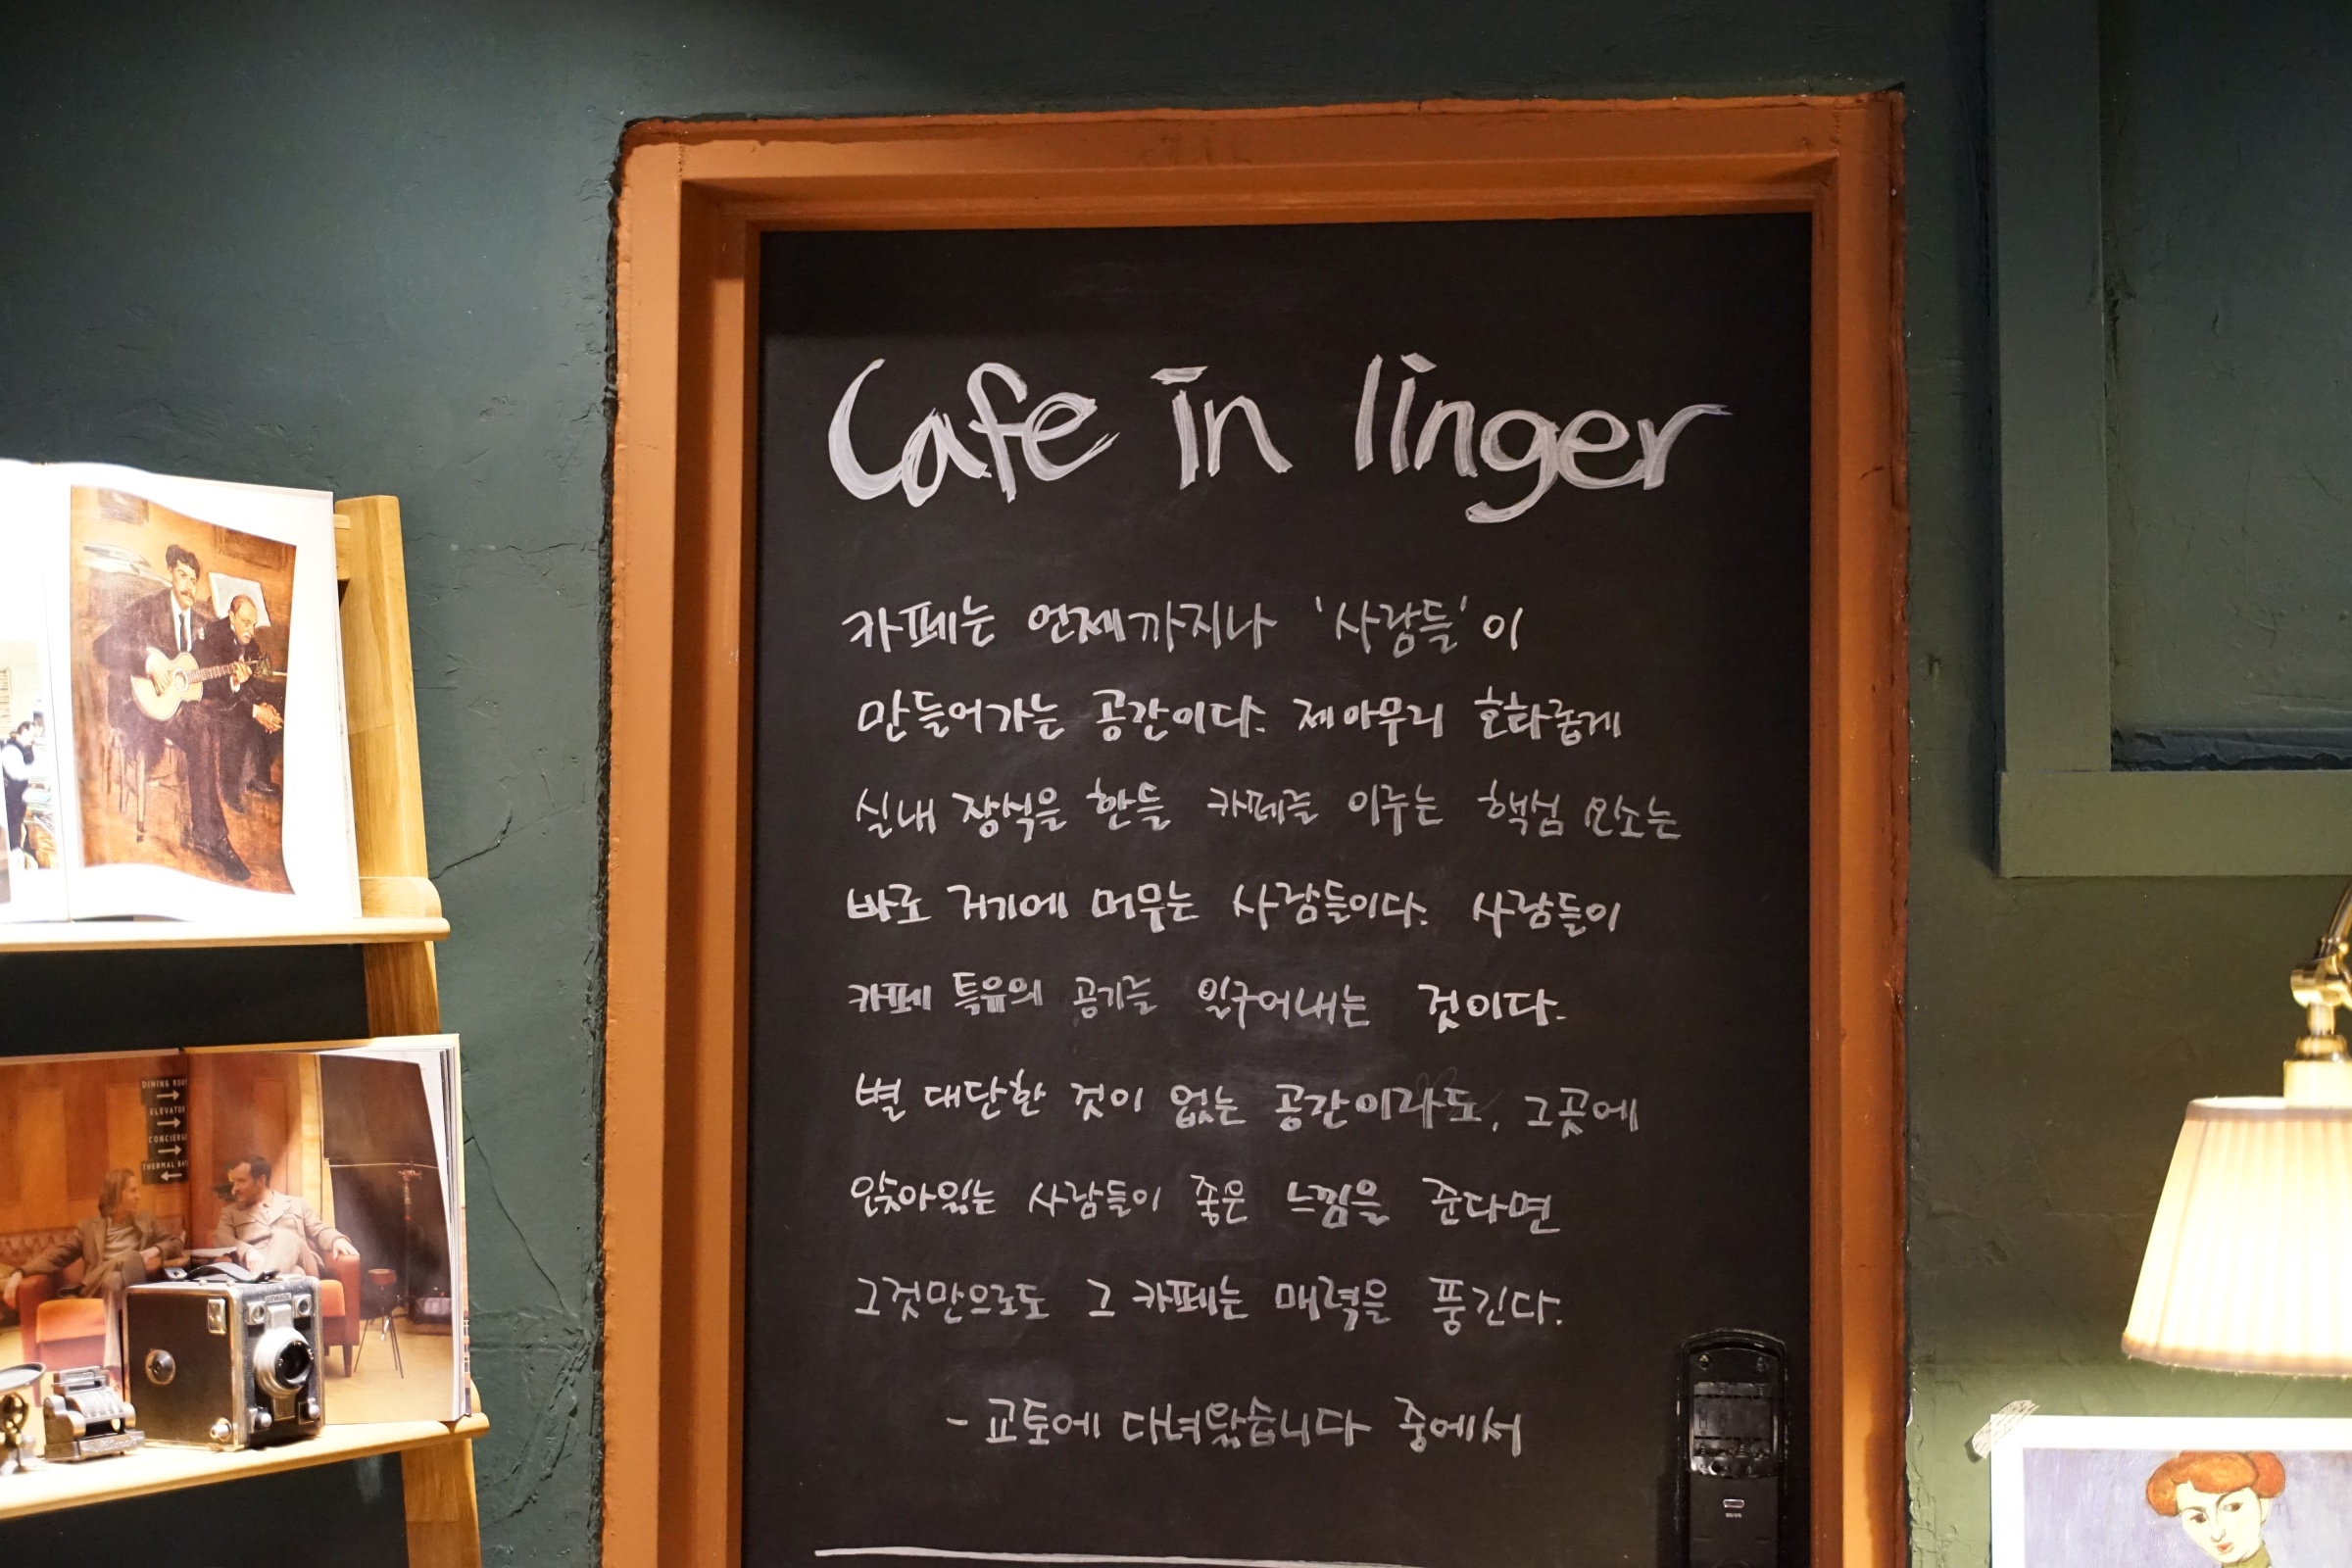 Cafe in linger
카페는 언제까지나 '사람들'이
만들어가는 공간이다. 제아무리 호화롭게
실내 장식을 한들 카페를 이루는 핵심 요소는
바로 거기에 머무는 사람들이다. 사람들이
카페 특유의 공기를 일구어내는 것이다.
별 대단한 것이 없는 공간이라도, 그곳에
앉아있는 사람들이 좋은 느낌을 준다면
그것만으로도 그 카페는 매력을 풍긴다.
- 교토에 다녀왔습니다 중에서
DINING ROO
ELEVATO
CONCIERG
THERMAL BA